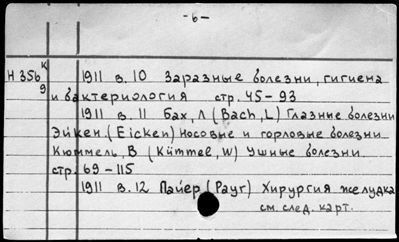 -6-
К
Н 356 1911 в. 10 Заразные болезни, гигиена
9
и бактериология стр. 45-93
1911 в. 11 Бах, Л (Bach, L) Глазные болезни
Эйкен (Eicken) Носовые и горловые болезни
Кюммель, В (Kümmel, W) Ушные болезни.
стр. 69-115
1911 в. 12 Пайер (Payr) Хирургия желудка
см. след. карт.